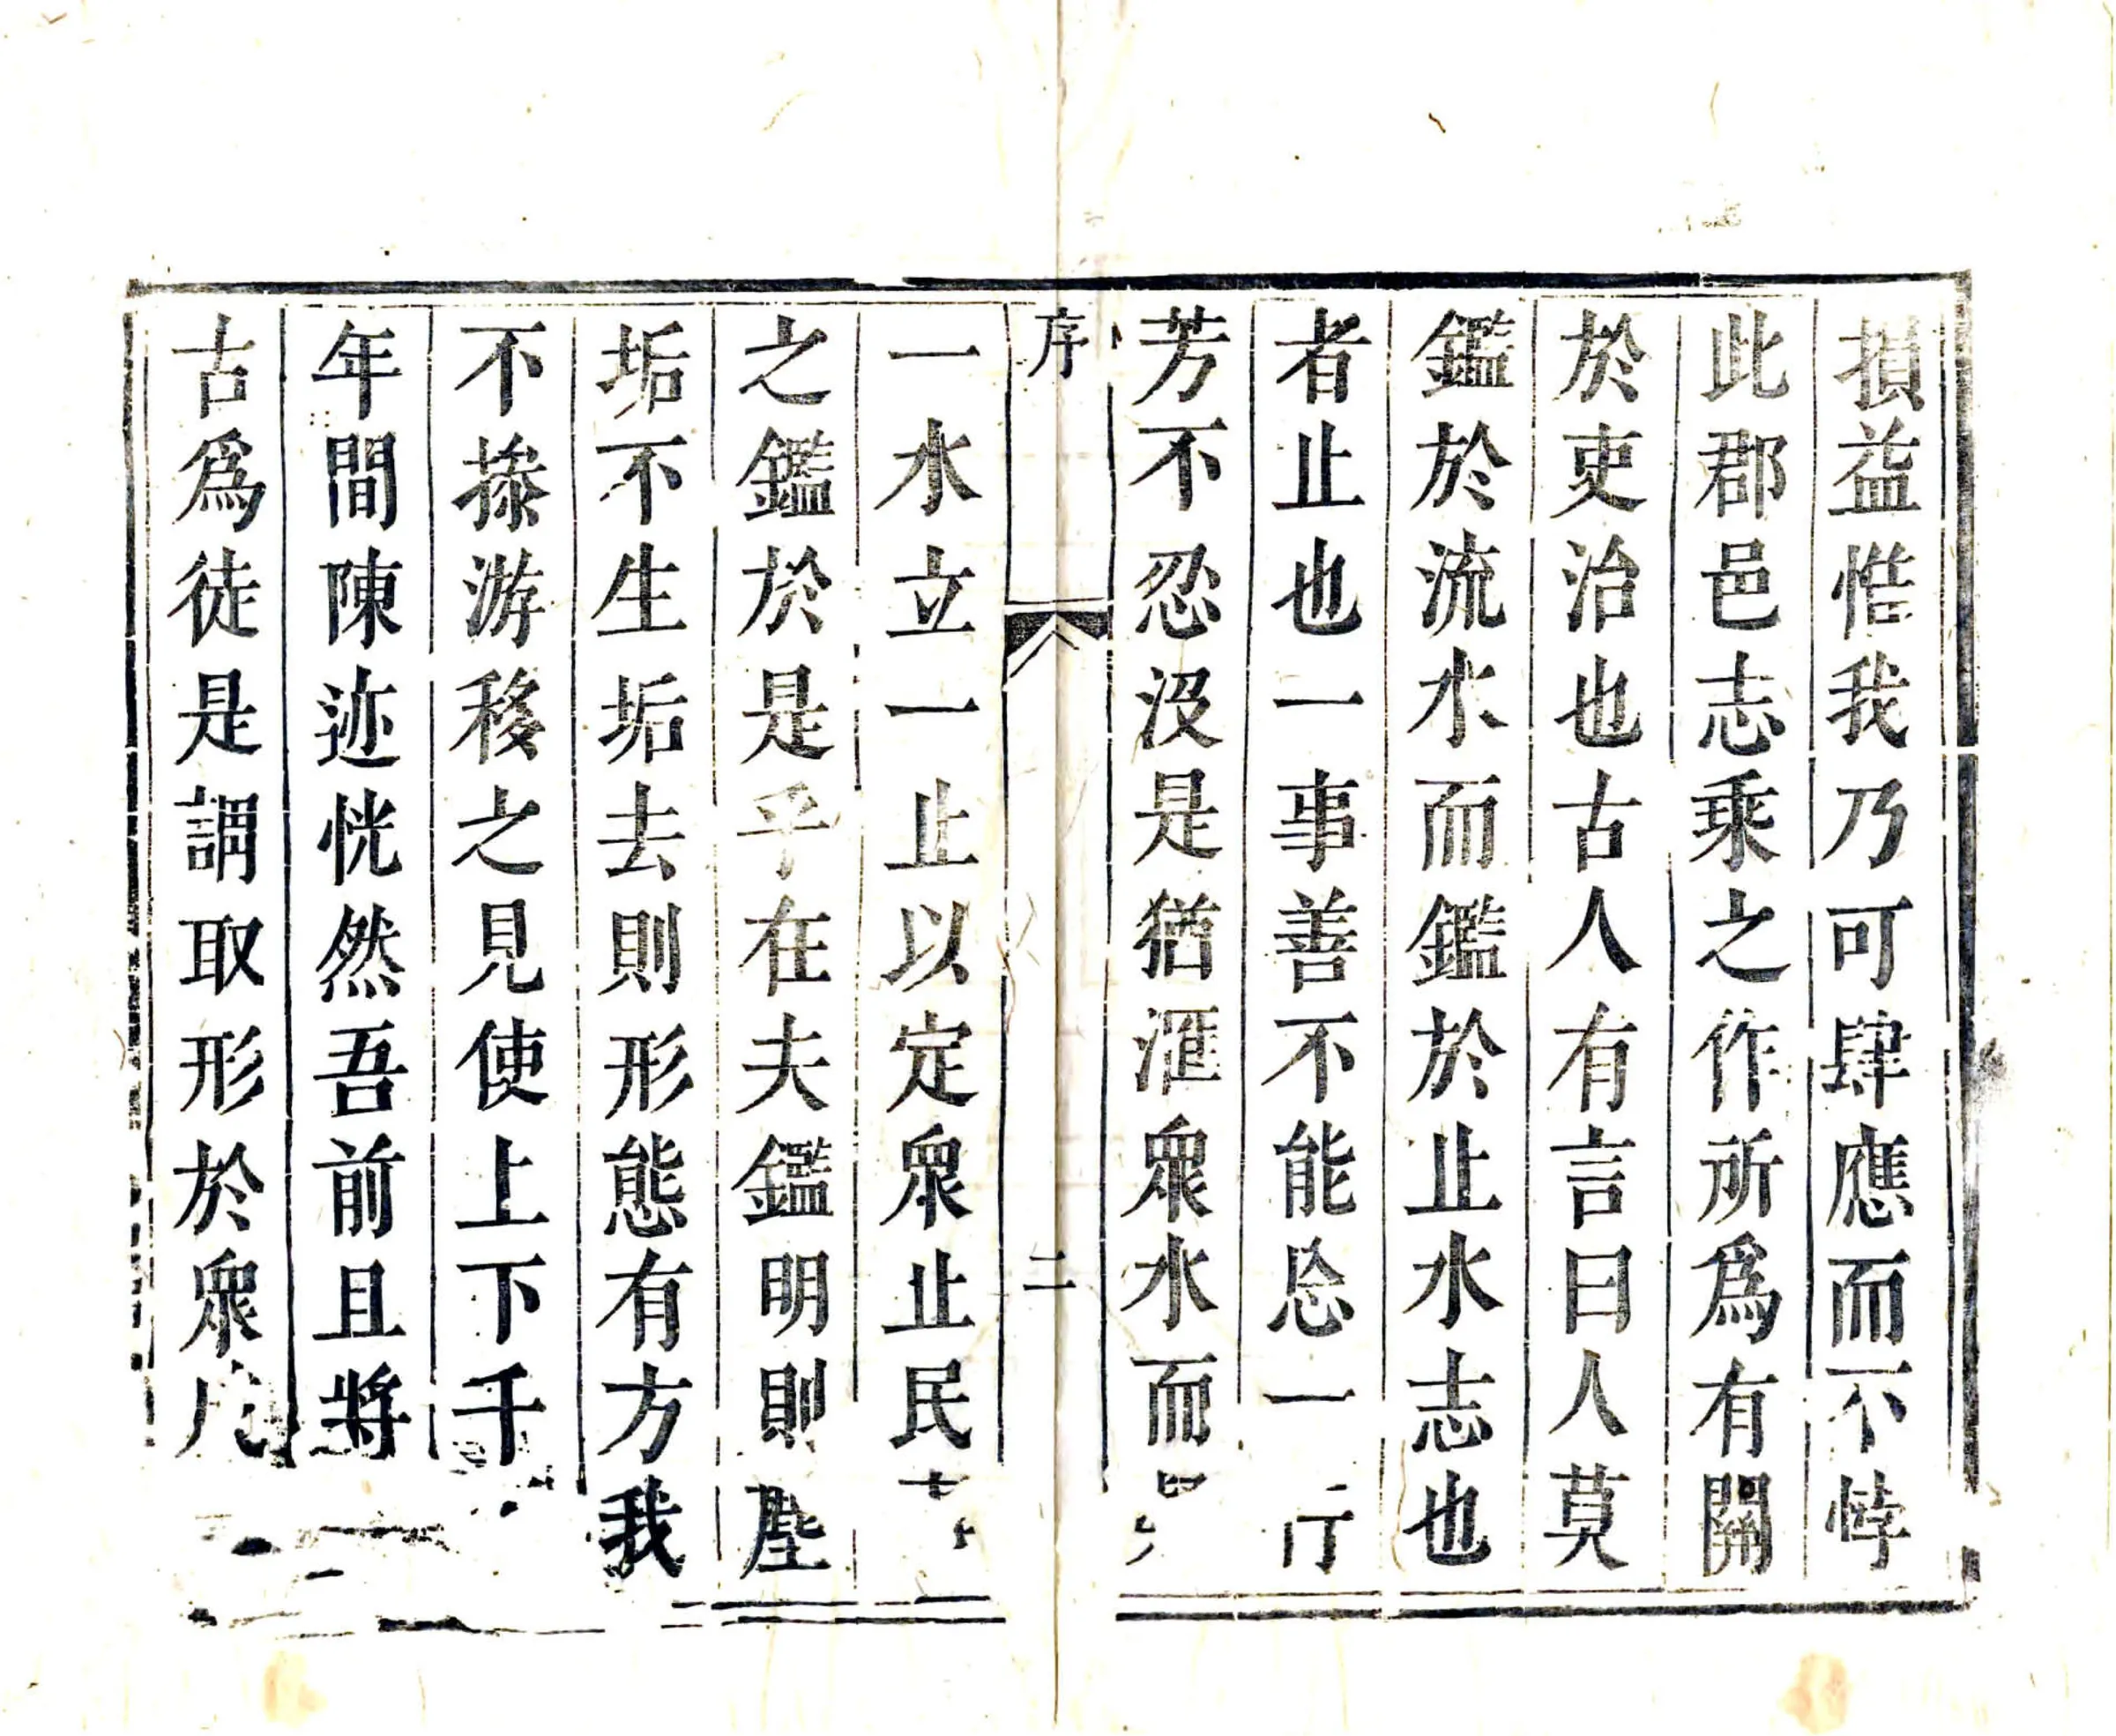 損益惟我乃可肆應而不悖
此郡邑志乘之作所爲有關
於吏治也古人有言曰人莫
鑑於流水而鑑於止水志也
者止也一事善不能忘一行
芳不忍沒是猶滙衆水而
序
二
一水立一止以定衆止民
之鑑於是乎在夫鑑明則塵
垢不生垢去則形態有方我
不摻游移之見使上下千
年間陳迹恍然吾前且將
古爲徒是謂取形於衆